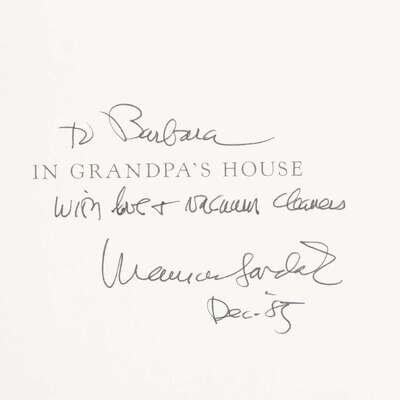 To Barbara
IN GRANDPA'S HOUSE
With love + vacuum cleaners
Maurice Sendak
Dec. '85